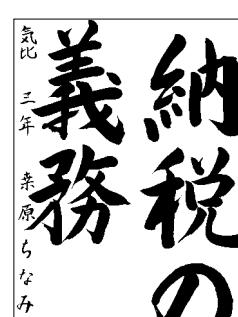 納税の
義務
気比 三年 桒原ちなみ